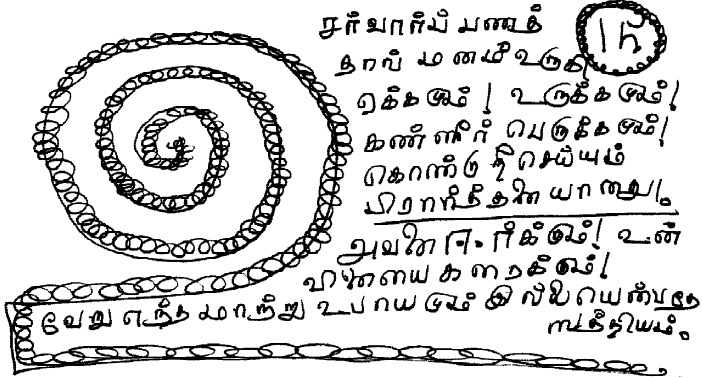 சர்வார்ப்பணத்
தால் மனம் உருகி
ஏக்கமும்! உருக்கமும்!
கண்ணீர் பெருக்கமும்!
கொண்டு நீ செய்யும்
பிரார்த்தனையானது.
அவனை ஈர்க்கும்! உன்
வினையை கரைக்கும்!
வேறு எந்த மாற்று உபாயமும் இல்லையென்பதே
சத்தியம்.